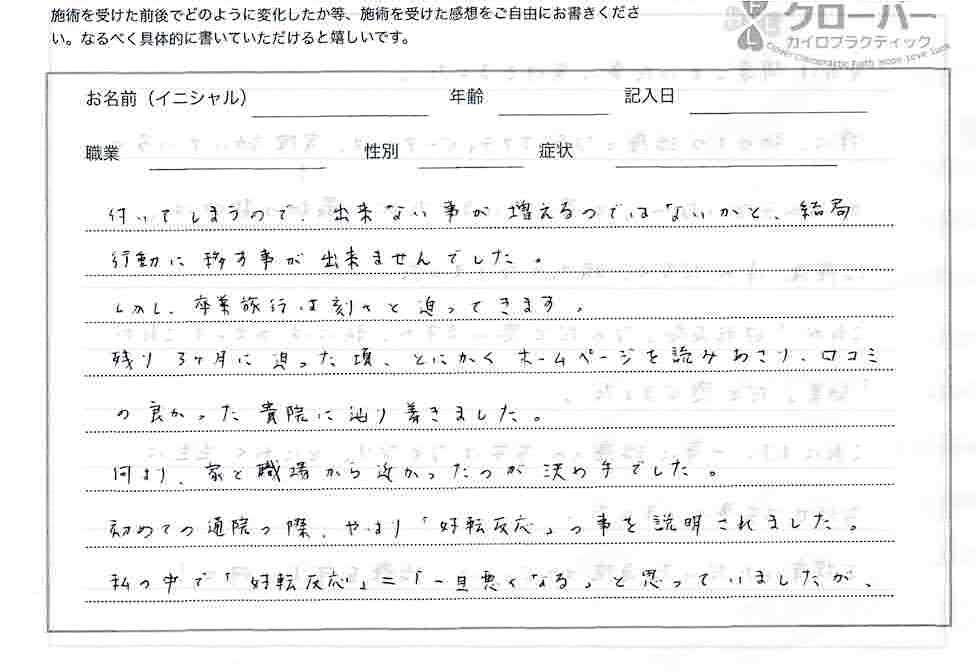 施術を受けた前後でどのように変化したか等、施術を受けた感想をご自由にお書きくださ
い。なるべく具体的に書いていただけると嬉しいです。
クローバー
カイロプラクティック
Clover Chiropractic Faith Hope Love Luck
お名前（イニシャル）
年齢
記入日
職業
性別
症状
付いてしまうので、出来ない事が増えるのではないかと、結局
行動に移す事が出来ませんでした。
しかし、卒業旅行は刻々と迫ってきます。
残り3ヶ月に迫った頃、とにかくホームページを読みあさり、口コミ
の良かった貴院に辿り着きました。
何より、家と職場から近かったのが決め手でした。
初めての通院の際、やはり「好転反応」の事を説明されました。
私の中で「好転反応」=「一旦悪くなる」と思っていましたが、